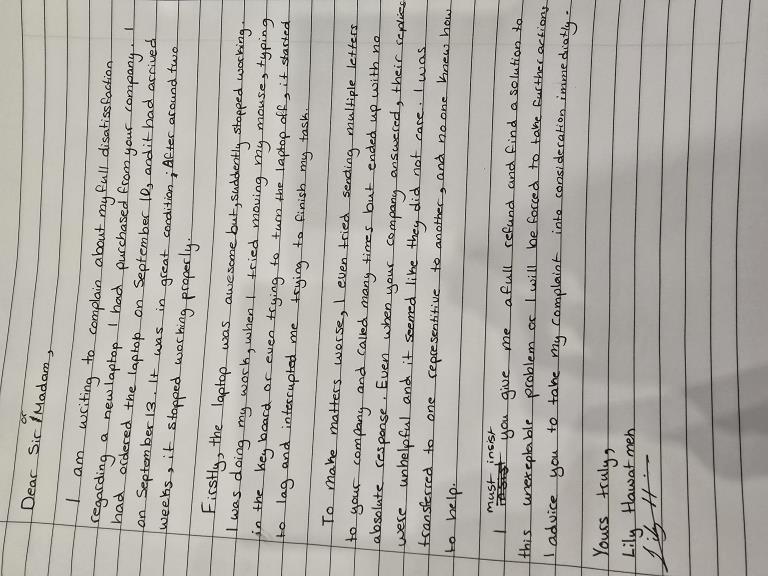 Dear Sir or Madam,
I am writing to complain about my full disatissfaction
regarding a new laptop I had purchased from your company. I
had ordered the laptop on September 10, and it had arrived
on September 13. It was in great condition; After around two
weeks, it stopped working properly.
Firstly, the laptop was awesome but, suddently stopped working.
I was doing my work, when I tried moving my mouse, typing
in the key board or even trying to turn the laptop off, it started
to lag and interrupted me trying to finish my task.
To make matters worse, I even tried sending multiple letters
to your company and called many times but ended up with no
absolute response. Even when your company answered, their replies
were unhelpful and it seemed like they did not care. I was
transferred to one representitive to another, and no one knew how
to help.
I must insist you give me a full refund and find a solution to
this unexeptable problem or I will be forced to take further actions
I advice you to take my complaint into consideration immediatly.
Yours truly,
Lily Hawatmeh
Lily H.